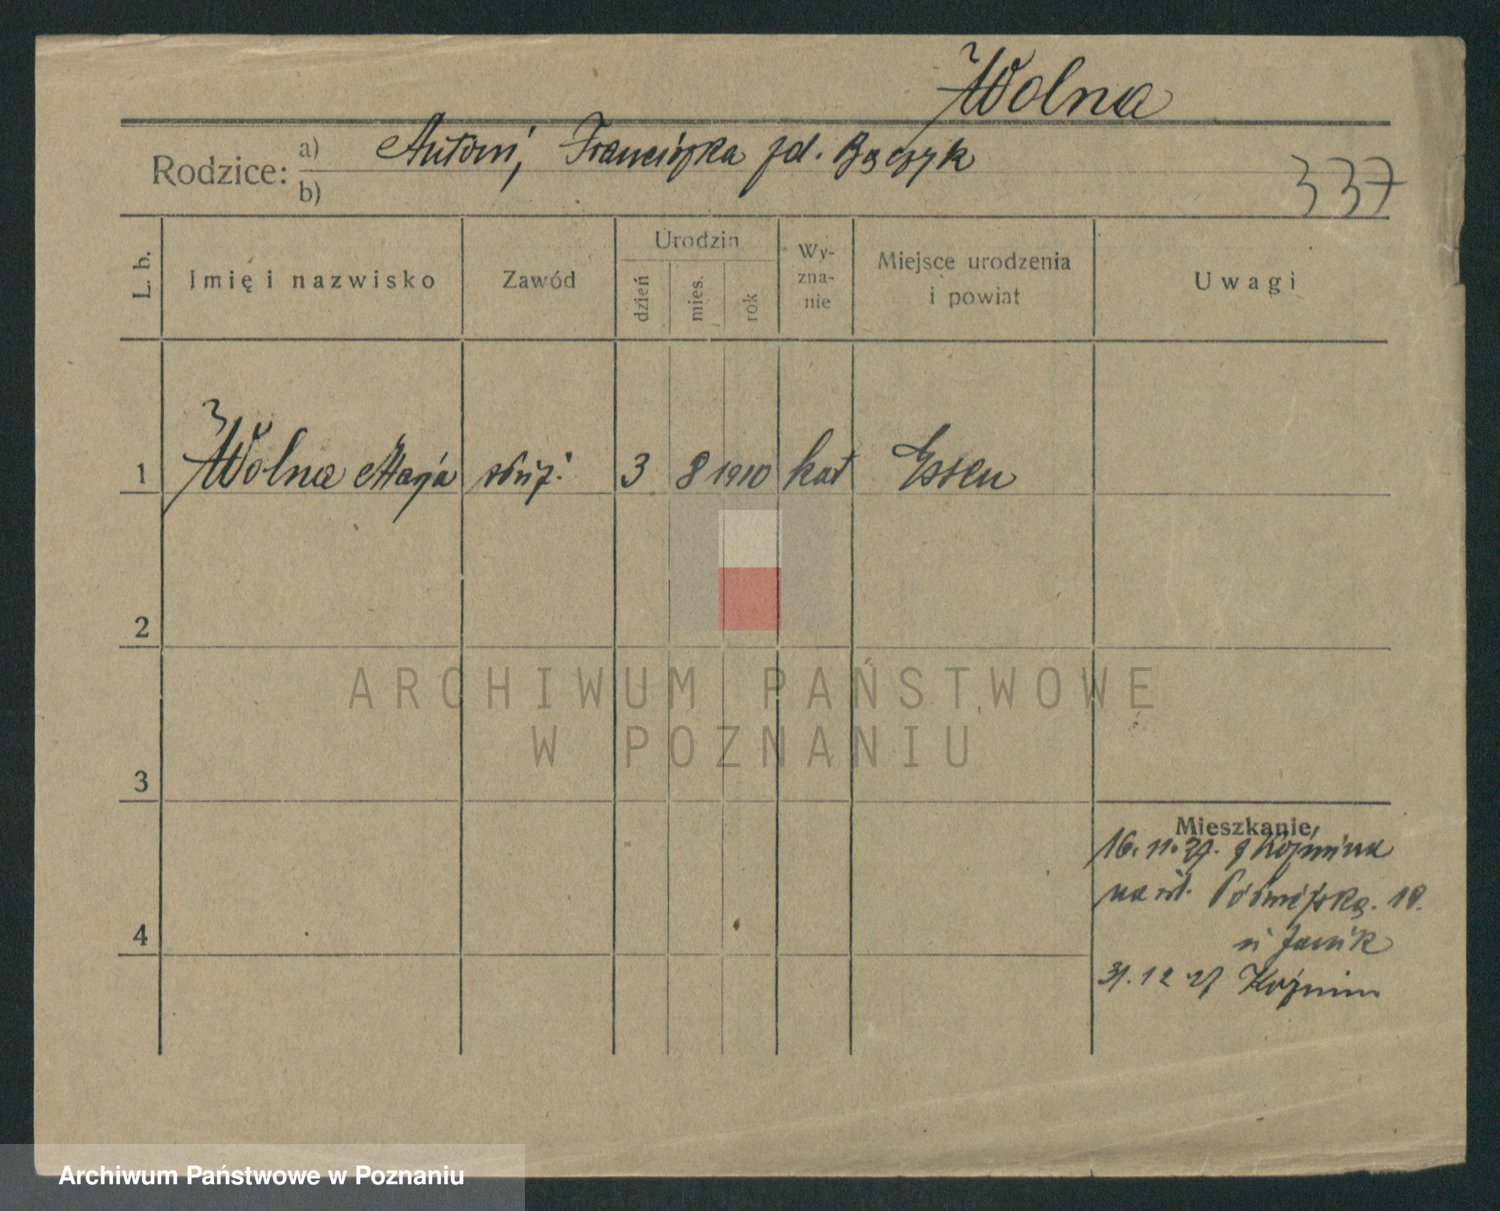 Wolna
Rodzice: a) Antoni, Franciszka zd. Bączyk
b)
337
L. b.
Imię i nazwisko
Zawód
Urodzin
dzień
mies.
rok
Wy-
zna-
nie
Miejsce urodzenia
i powiat
Uwagi
1 Wolna Marja służ. 3 8 1910 kat Essen
2
ARCHIWUM PAŃSTWOWE
W POZNANIU
3
Mieszkanie
16. 11. 27. z Koźmina
na ul. 18.
u
4
31. 12 27 Koźmin
Archiwum Państwowe w Poznaniu